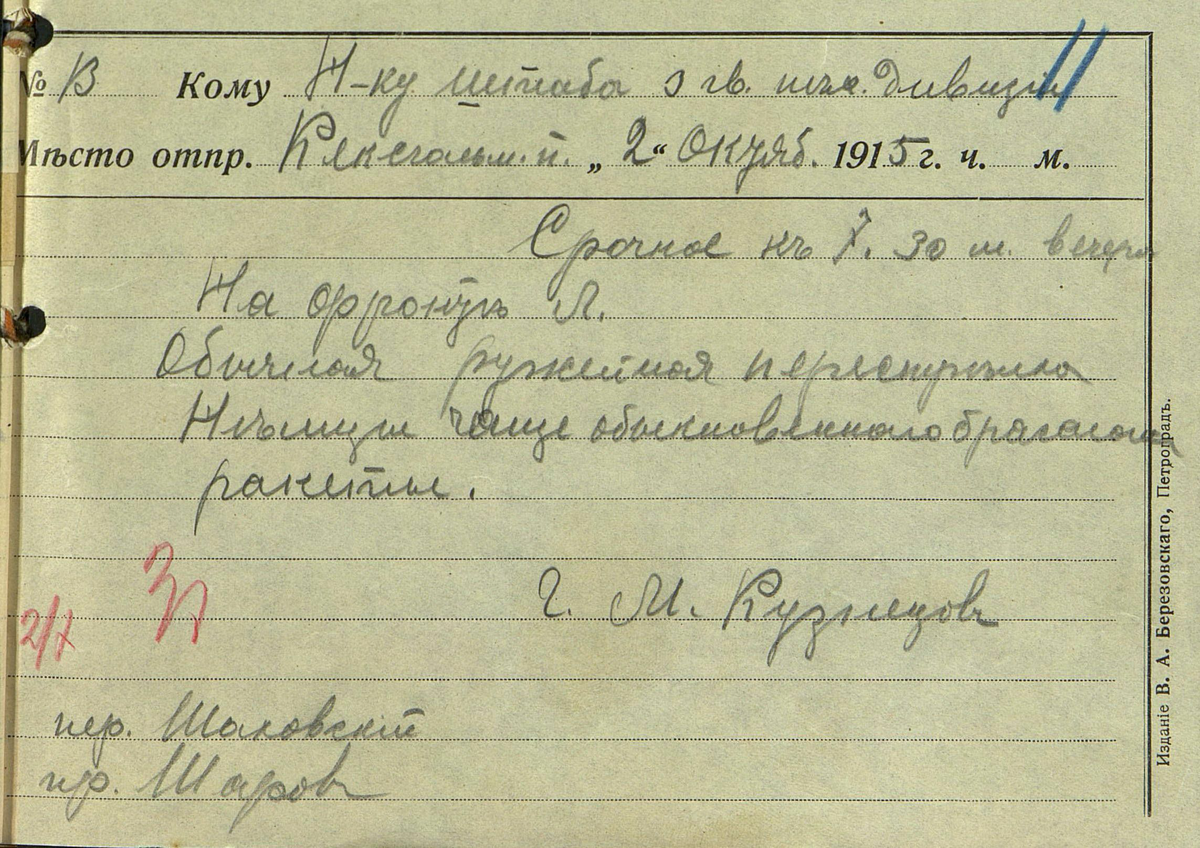 № В Кому Н-ку штаба 3 гв. пѣх. Дивизіи
Мѣсто отпр. Кексгольм. п. „2“ Октяб. 1915 г. ч. м.
Срочное къ 7. 30 м. вечера
На фронтѣ Л.
Обычная ружейная перестрѣлка
Нѣмцы чаще обыкновеннаго бросаютъ
ракеты.
Г. М. Кузнецовъ
2/X
пер. Шаховскій
пр. Шаровъ
Изданіе В. А. Березовскаго, Петроградъ.